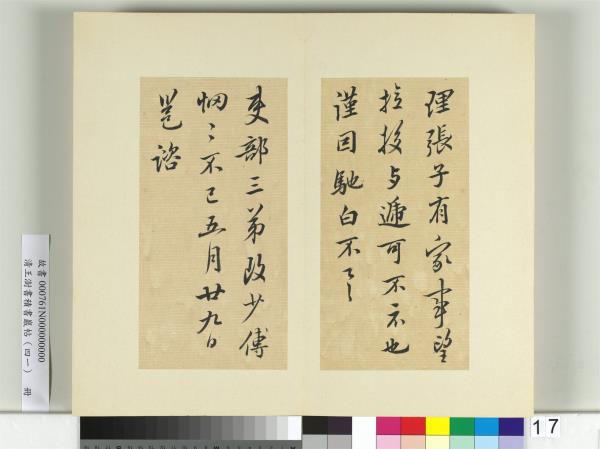 理張子有家事望
拉拔与遞可不示也
謹因馳白不一一
吏部三弟改少傅
悃〻不已五月廿九日
邕諮
故書000761N000000000
清王澍書積書巖帖(四一) 冊
17